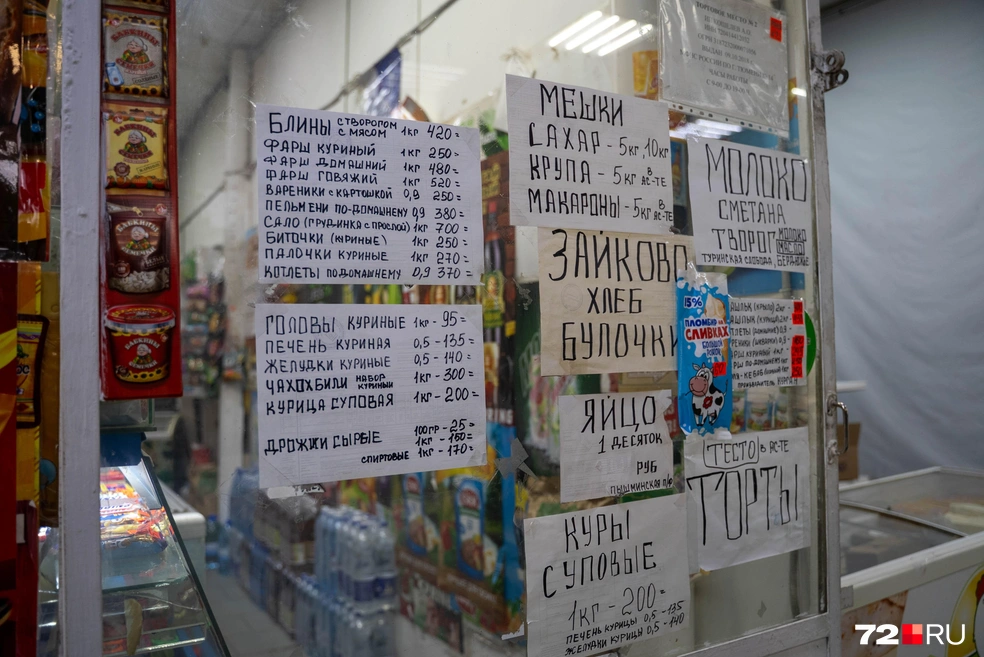 БЛИНЫ С ТВОРОГОМ С МЯСОМ 1кг 420=
ФАРШ КУРИНЫЙ 1кг 250=
ФАРШ ДОМАШНИЙ 1кг 480=
ФАРШ ГОВЯЖИЙ 1кг 520=
ВАРЕНИКИ С КАРТОШКОЙ 0,9 250=
ПЕЛЬМЕНИ ПО-ДОМАШНЕМУ 0,9 380=
САЛО (ГРУДИНКА С ПРОСЛОЙ) 1кг 700=
БИТОЧКИ (КУРИНЫЕ) 1кг 250=
ПАЛОЧКИ КУРИНЫЕ 1кг 270=
КОТЛЕТЫ ПОДОМАШНЕМУ 0,9 370=
ГОЛОВЫ КУРИНЫЕ 1кг - 95=
ПЕЧЕНЬ КУРИНАЯ 0,5 - 135=
ЖЕЛУДКИ КУРИНЫЕ 0,5 - 140=
ЧАХОХБИЛИ НАБОР КУРИНЫЙ 1кг - 300=
КУРИЦА СУПОВАЯ 1кг - 200=
ДРОЖЖИ СЫРЫЕ 100гр - 25=
1кг - 150=
СПИРТОВЫЕ 1кг - 170=
МЕШКИ
САХАР - 5кг, 10кг
КРУПА - 5кг В АС-ТЕ
МАКАРОНЫ - 5кг В АС-ТЕ
ЗАЙКОВО
ХЛЕБ
БУЛОЧКИ
ЯЙЦО
1 ДЕСЯТОК
РУБ
ПЫШМИНСКАЯ П/Ф
КУРЫ
СУПОВЫЕ
1кг - 200=
ПЕЧЕНЬ КУРИЦЫ 0,5 - 135
ЖЕЛУДКИ КУРИЦЫ 0,5 - 140
ТОРГОВОЕ МЕСТО № 2
МОЛОКО
СМЕТАНА
ТВОРОГ
МОЛОКО
МАСЛО
ТУРИНСКАЯ СЛОБОДА, БЕРДЮЖЬЕ
15%
ПЛОМБИР НА
СЛИВКАХ
ТЕСТО В АС-ТЕ
ТОРТЫ
72.RU